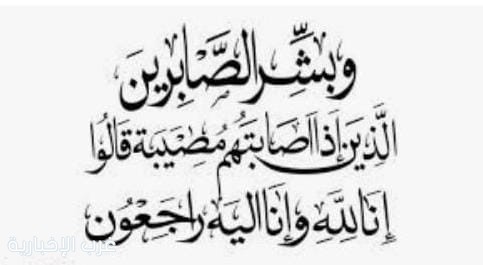 وبشِّر الصَّابِرين
الَّذِين إذا أصَابتهُم مُصِيبَة قَالُوا
إنَا لِلَّهِ وإنا اليَه رَاجعُون
عرب الإخبارية